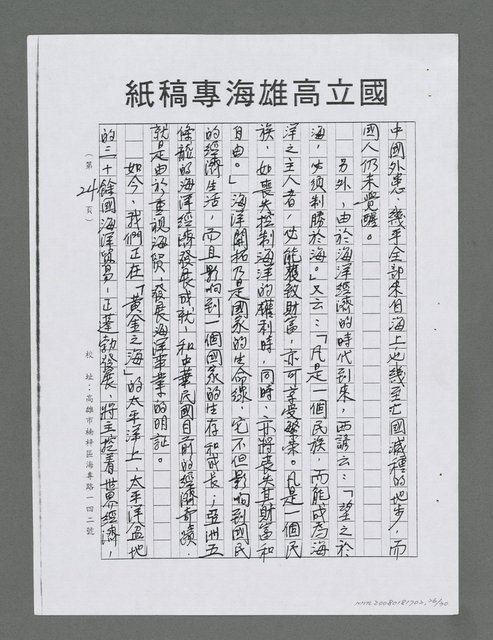 國立高雄海專稿紙
中國外患，幾乎全部來自海上，也幾至亡國滅種的地步，而
國人仍未覺醒。
另外，由於海洋經濟的時代到來，西諺云：「望之於
海，必須制勝於海。」又云：「凡是一個民族，而能成為海
洋之主人者，必能獲致財富，亦可享受繁榮。凡是一個民
族，如喪失控制海洋的權利時，同時，亦將喪失其財富和
自由。」海洋開拓乃是國家的生命線，它不但影响到國民
的經濟生活，而且影响到一個國家的生存和成長；亞洲五
條龍的海洋經濟發展成就，和中華民國目前的經濟奇蹟，
就是由於重視海貿，發展海洋事業的明証。
如今，我們正在「黃金之海」的太平洋上，太平洋盆地
的三十餘國海洋貿易，正蓬勃發展，將主控着世界經濟，
（第 24 頁）
校址：高雄市楠梓區海專路一四二號
NMTL20080181702, 26/30